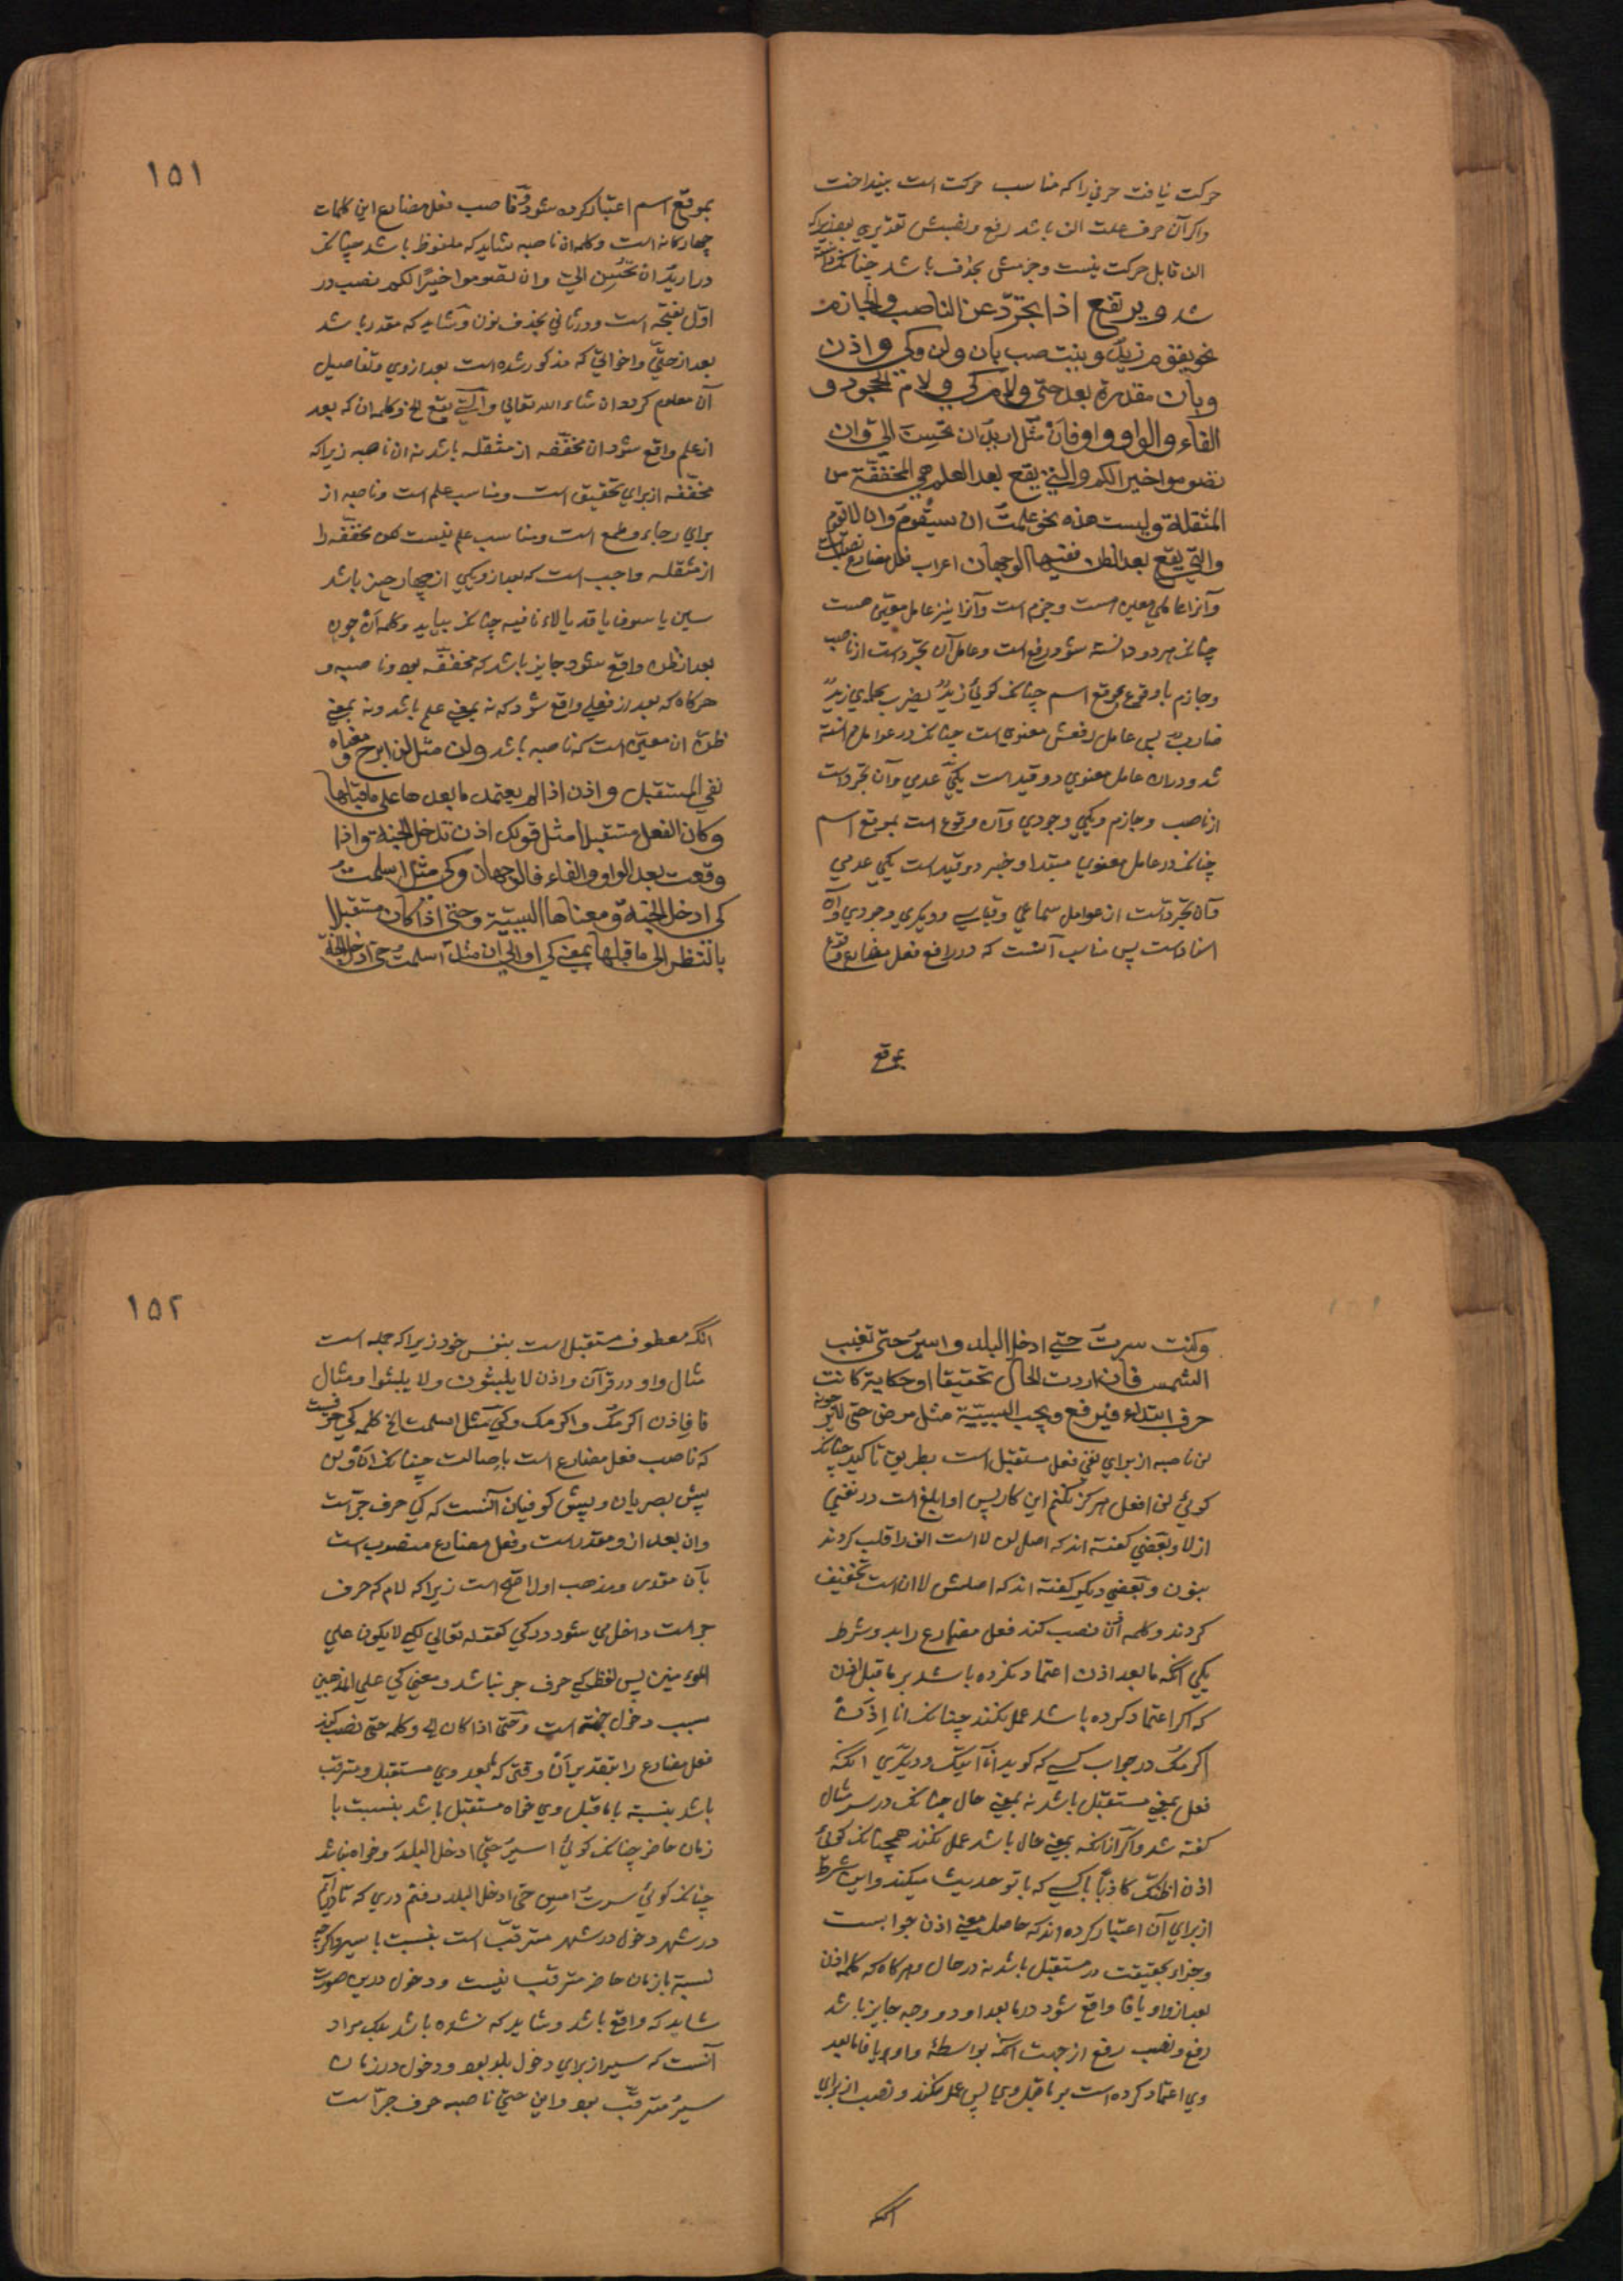 حرکت نیافت حرفی را که مناسب حرکت است بینداخت
واکر آن حرف علت الف باشد رفع ونصبش تقدیری بود زیراکه
الف قابل حرکت نیست وجزمش بحذف باشد چنانک دانسته
شد ویرتفع اذا تجرّد عن الناصب والجازم
نحو یقوم زید وینتصب بان ولن وکی واذن
وبان مقدرة بعد حتی ولام کی ولام الجحود و
الفاء والواو واو فان مثل ارید ان تحسن الیّ وان
تصوموا خیر لکم والتی یقع بعد العلم هی المخففة من
المثقلة ولیست هذه نحو علمت ان سیقوم وان لا یقوم
والتی یقع بعد الظن ففیها الوجهان اعراب فعل مضارع نصب است
وآنرا عاملی معین است وجزم است وآنرا نیز عامل معین هست
چنانک هر دو دانسته شود ورفع است وعامل آن تجرّد است از ناصب
وجازم با وقوع بموقع اسم چنانک کوئی زیدٌ یضرب بجای زیدٌ
ضاربٌ پس عامل رفعش معنوی است چنانک در عوامل دانسته
شد ودران عامل معنوی دو قید است یکی عدمی وآن تجرّد است
از ناصب وجازم ویکی وجودی وآن وقوع است بموقع اسم
چنانک در عامل معنوی مبتدا وخبر دو قید است یکی عدمی
وآن تجرّد است از عوامل سماعی وقیاسی ودیکری وجودی وآن
اسناد است پس مناسب آنست که در رافع فعل مضارع وقوع
بموقع
۱۵۱
بموقع اسم اعتبار کرده شود وناصب فعل مضارع این کلمات
چهارکانه است وکلمه ان ناصبه شاید که ملفوظ باشد چنانک
در ارید ان تحسن الیّ وان تصوموا خیرًا لکم نصب در
اوّل بفتحه است ودر ثانی بحذف نون وشاید که مقدر باشد
بعد از حتّی واخواتی که مذکور شده است بعد ازوی وتفاصیل
آن معلوم کردد ان شاء الله تعالی والتی یقع الخ وکلمه ان که بعد
از علم واقع شود ان مخفّفه از مثقله باشد نه ان ناصبه زیراکه
مخفّفه از برای تحقیق است ومناسب علم است وناصبه از
برای رجاء وطمع است ومناسب علم نیست لکن مخففه را
از مثقله واجب است که بعد ازو یکی از چهار چیز باشد
سین یا سوف یا قد یا لاء نافیه چنانک بیاید وکلمه ان چون
بعد از ظن واقع شود جایز باشد که مخففه بود وناصبه و
هرکاه که بعد از فعلی واقع شود که نه بمعنی علم باشد ونه بمعنی
ظن ان معین است که ناصبه باشد ولن مثل لن ابرح ومعناه
نفی المستقبل واذن اذا لم یعتمد ما بعدها علی ما قبلها
وکان الفعل مستقبلا مثل قولک اذن تدخل الجنة واذا
وقعت بعد الواو والفاء فالوجهان وکی مثل اسلمت
کی ادخل الجنة ومعناها السببیّة وحتی اذا کان مستقبلا
بالنظر الی ما قبلها بمعنی کی او الی ان مثل اسلمت حتی ادخل الجنة
وکنت سرت حتی ادخل البلد واسیر حتی تغیب
الشمس فان اردت الحال تحقیقا او حکایة کانت
حرف ابتداء فیرفع ویجب السببیّة مثل مرض حتی لا یرجونه
لن ناصبه از برای نفی فعل مستقبل است بطریق تاکید چنانک
کوئی لن افعل هرکز نکنم این کار پس او ابلغ است در نفی
از لا وبعضی کفته اند که اصل لن لا است الف را قلب کردند
بنون وبعضی دیکر کفته اند که اصلش لا ان است تخفیف
کردند وکلمه اذن نصب کند فعل مضارع را بدو شرط
یکی آنکه ما بعد اذن اعتماد نکرده باشد بر ما قبل اذن
که اکر اعتماد کرده باشد عمل نکند چنانک انا اذن
اکرمک در جواب کسی که کوید انا آتیک ودیکری آنکه
فعل بمعنی مستقبل باشد نه بمعنی حال چنانک در سر مثال
کفته شد واکر آنکه بمعنی حال باشد عمل نکند همچنانک کوئی
اذن اظنک کاذباً باکسی که با تو حدیث میکند واین شرط
از برای آن اعتبار کرده اند که حاصل معنی اذن جوابست
وجزاء بحقیقت در مستقبل باشد نه در حال وهرکاه که کلمه اذن
بعد از واو یا فا واقع شود در ما بعد او دو وجه جایز باشد
رفع ونصب رفع از جهت آنکه بواسطهٔ واو یا فا ما بعد
وی اعتماد کرده است بر ما قبل وی پس عمل نکند ونصب از برای
آنکه
۱۵۲
آنکه معطوف مستقبل است بنفس خود زیراکه جمله است
مثال واو در قرآن واذن لا یلبثون ولا یلبثوا ومثال
فا فاذن اکرمک واکرمک وکی مثل اسلمت الخ کلمه کی حرفیست
که ناصب فعل مضارع است باصالت چنانک ان ولن
پیش بصریان وپیش کوفیان آنست که کی حرف جرّ است
وان بعد ازو مقدر است وفعل مضارع منصوب است
بآن مقدر ومذهب اول اصح است زیراکه لام که حرف
جر است داخل می شود در کی کقوله تعالی لکی لا یکون علی
المؤمنین پس لفظ کی حرف جر نباشد ومعنی کی علی المذهبین
سبب دخول جنّة است وحتی اذا کان الخ وکلمه حتی نصب کند
فعل مضارع را بتقدیر ان وقتی که بعد وی مستقبل ومترقب
باشد بنسبة با ما قبل وی خواه مستقبل باشد بنسبت با
زمان حاضر چنانک کوئی اسیر حتی ادخل البلد وخواه نباشد
چنانک کوئی سرت امس حتی ادخل البلد رفتم دری که تا درآیم
در شهر دخول در شهر مترقب است بنسبت با سیر واکرچه
نسبة با زمان حاضر مترقب نیست ودخول درین صورت
شاید که واقع باشد وشاید که نشده باشد بلک مراد
آنست که سیر از برای دخول بلد بود ودخول در زمان
سیر مترقب بود واین حتی ناصبه حرف جرّ است